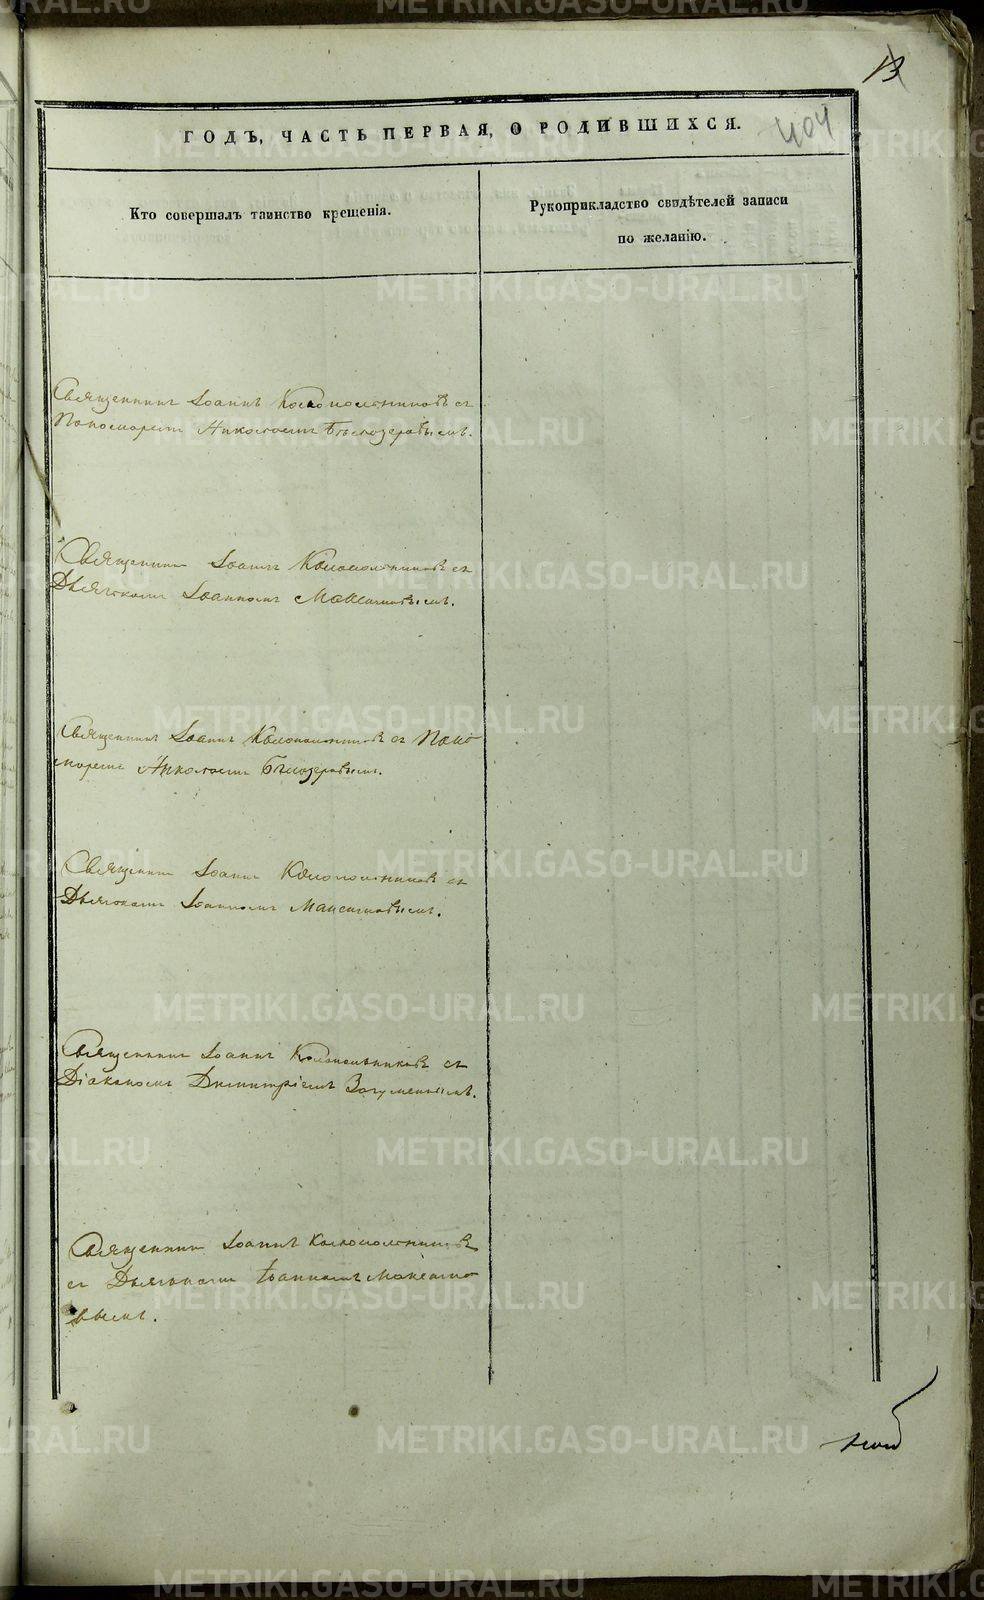 13
404
ГОДЪ, ЧАСТЬ ПЕРВАЯ, О РОДИВШИХСЯ.
Кто совершалъ таинство крещенія.
Рукоприкладство свидѣтелей записи
по желанію.
Священникъ Іоаннъ Колокольниковъ съ
Пономаремъ Николаемъ Бѣлозеровымъ.
Священникъ Іоаннъ Колокольниковъ съ
Дьячкомъ Іоанномъ Максимовымъ.
Священникъ Іоаннъ Колокольниковъ съ Поно
маремъ Николаемъ Бѣлозеровымъ.
Священникъ Іоаннъ Колокольниковъ съ
Дьячкомъ Іоанномъ Максимовымъ.
Священникъ Іоаннъ Колокольниковъ съ
Діакономъ Димитріемъ Загуменнымъ.
Священникъ Іоаннъ Колокольниковъ
съ Дьячкомъ Іоанномъ Максимо
вымъ.
METRIKI.GASO-URAL.RU